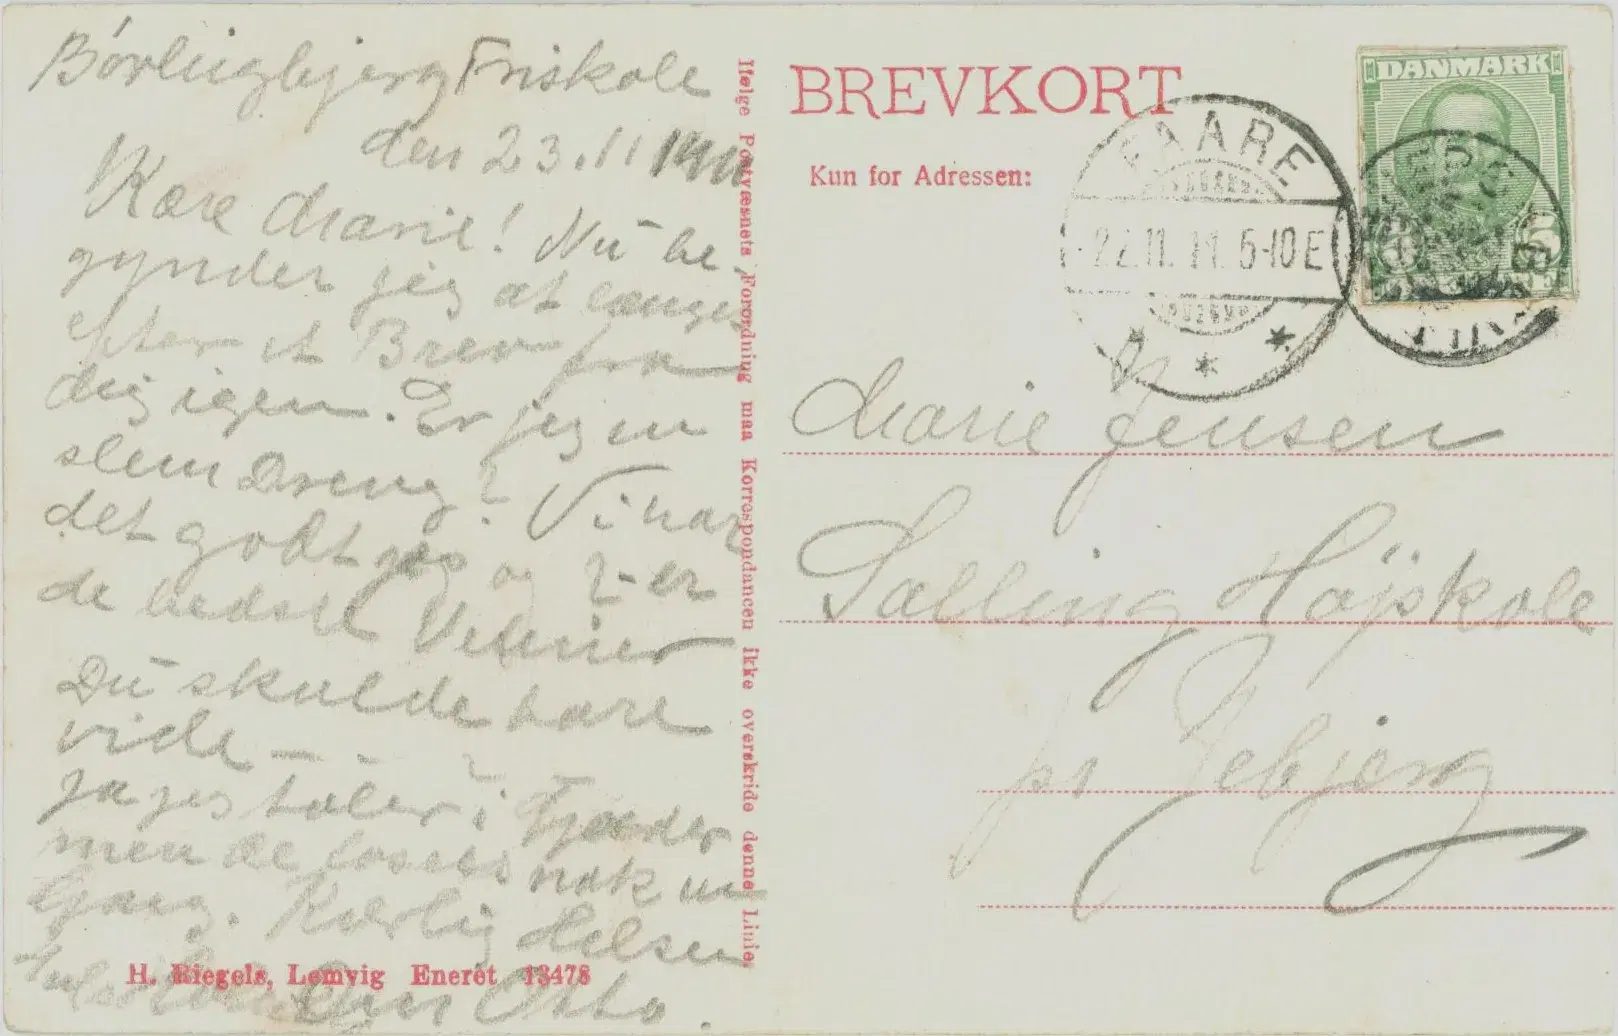 Bövlingbjerg Friskole
den 23.11 1911
Kære Marie! Nu be-
gynder jeg at længes
efter et Brev fra
dig igen. Er jeg en
slem Dreng? Vi har
det godt jeg og 2-er
de bedste Venner
Du skulde bare
vide - -
ja jeg taler i Gaader
men de løses nok en
Gang. Kærlig Hilsen
Din Otto.
H. Riegels, Lemvig Eneret 13478
Ifølge Postvæsnets Forordning maa Korrespondancen ikke overskride denne Linie.
BREVKORT
Kun for Adressen:
DANMARK
5
FAARE
22.11.11.6-10E
Marie Jensen
Salling Højskole
pr Jebjerg